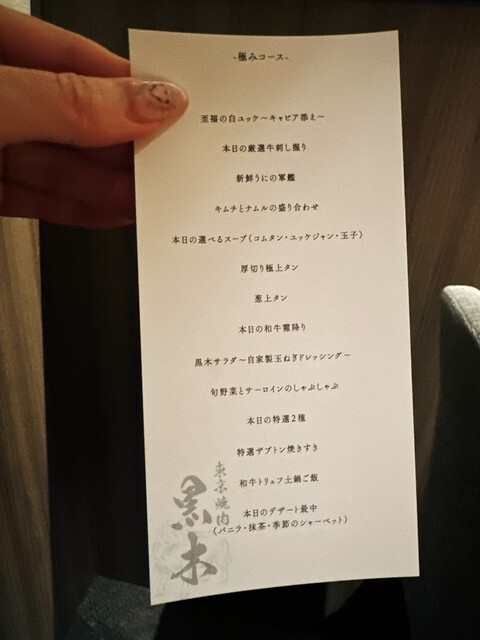 -極みコース-
至福の白ユッケ～キャビア添え～
本日の厳選牛刺し握り
新鮮うにの軍艦
キムチとナムルの盛り合わせ
本日の選べるスープ(コムタン・ユッケジャン・玉子)
厚切り極上タン
葱上タン
本日の和牛霜降り
黒木サラダ～自家製玉ねぎドレッシング～
旬野菜とサーロインのしゃぶしゃぶ
本日の特選2種
特選ザブトン焼きすき
和牛トリュフ土鍋ご飯
本日のデザート最中
(バニラ・抹茶・季節のシャーベット)
東京焼肉
黒木